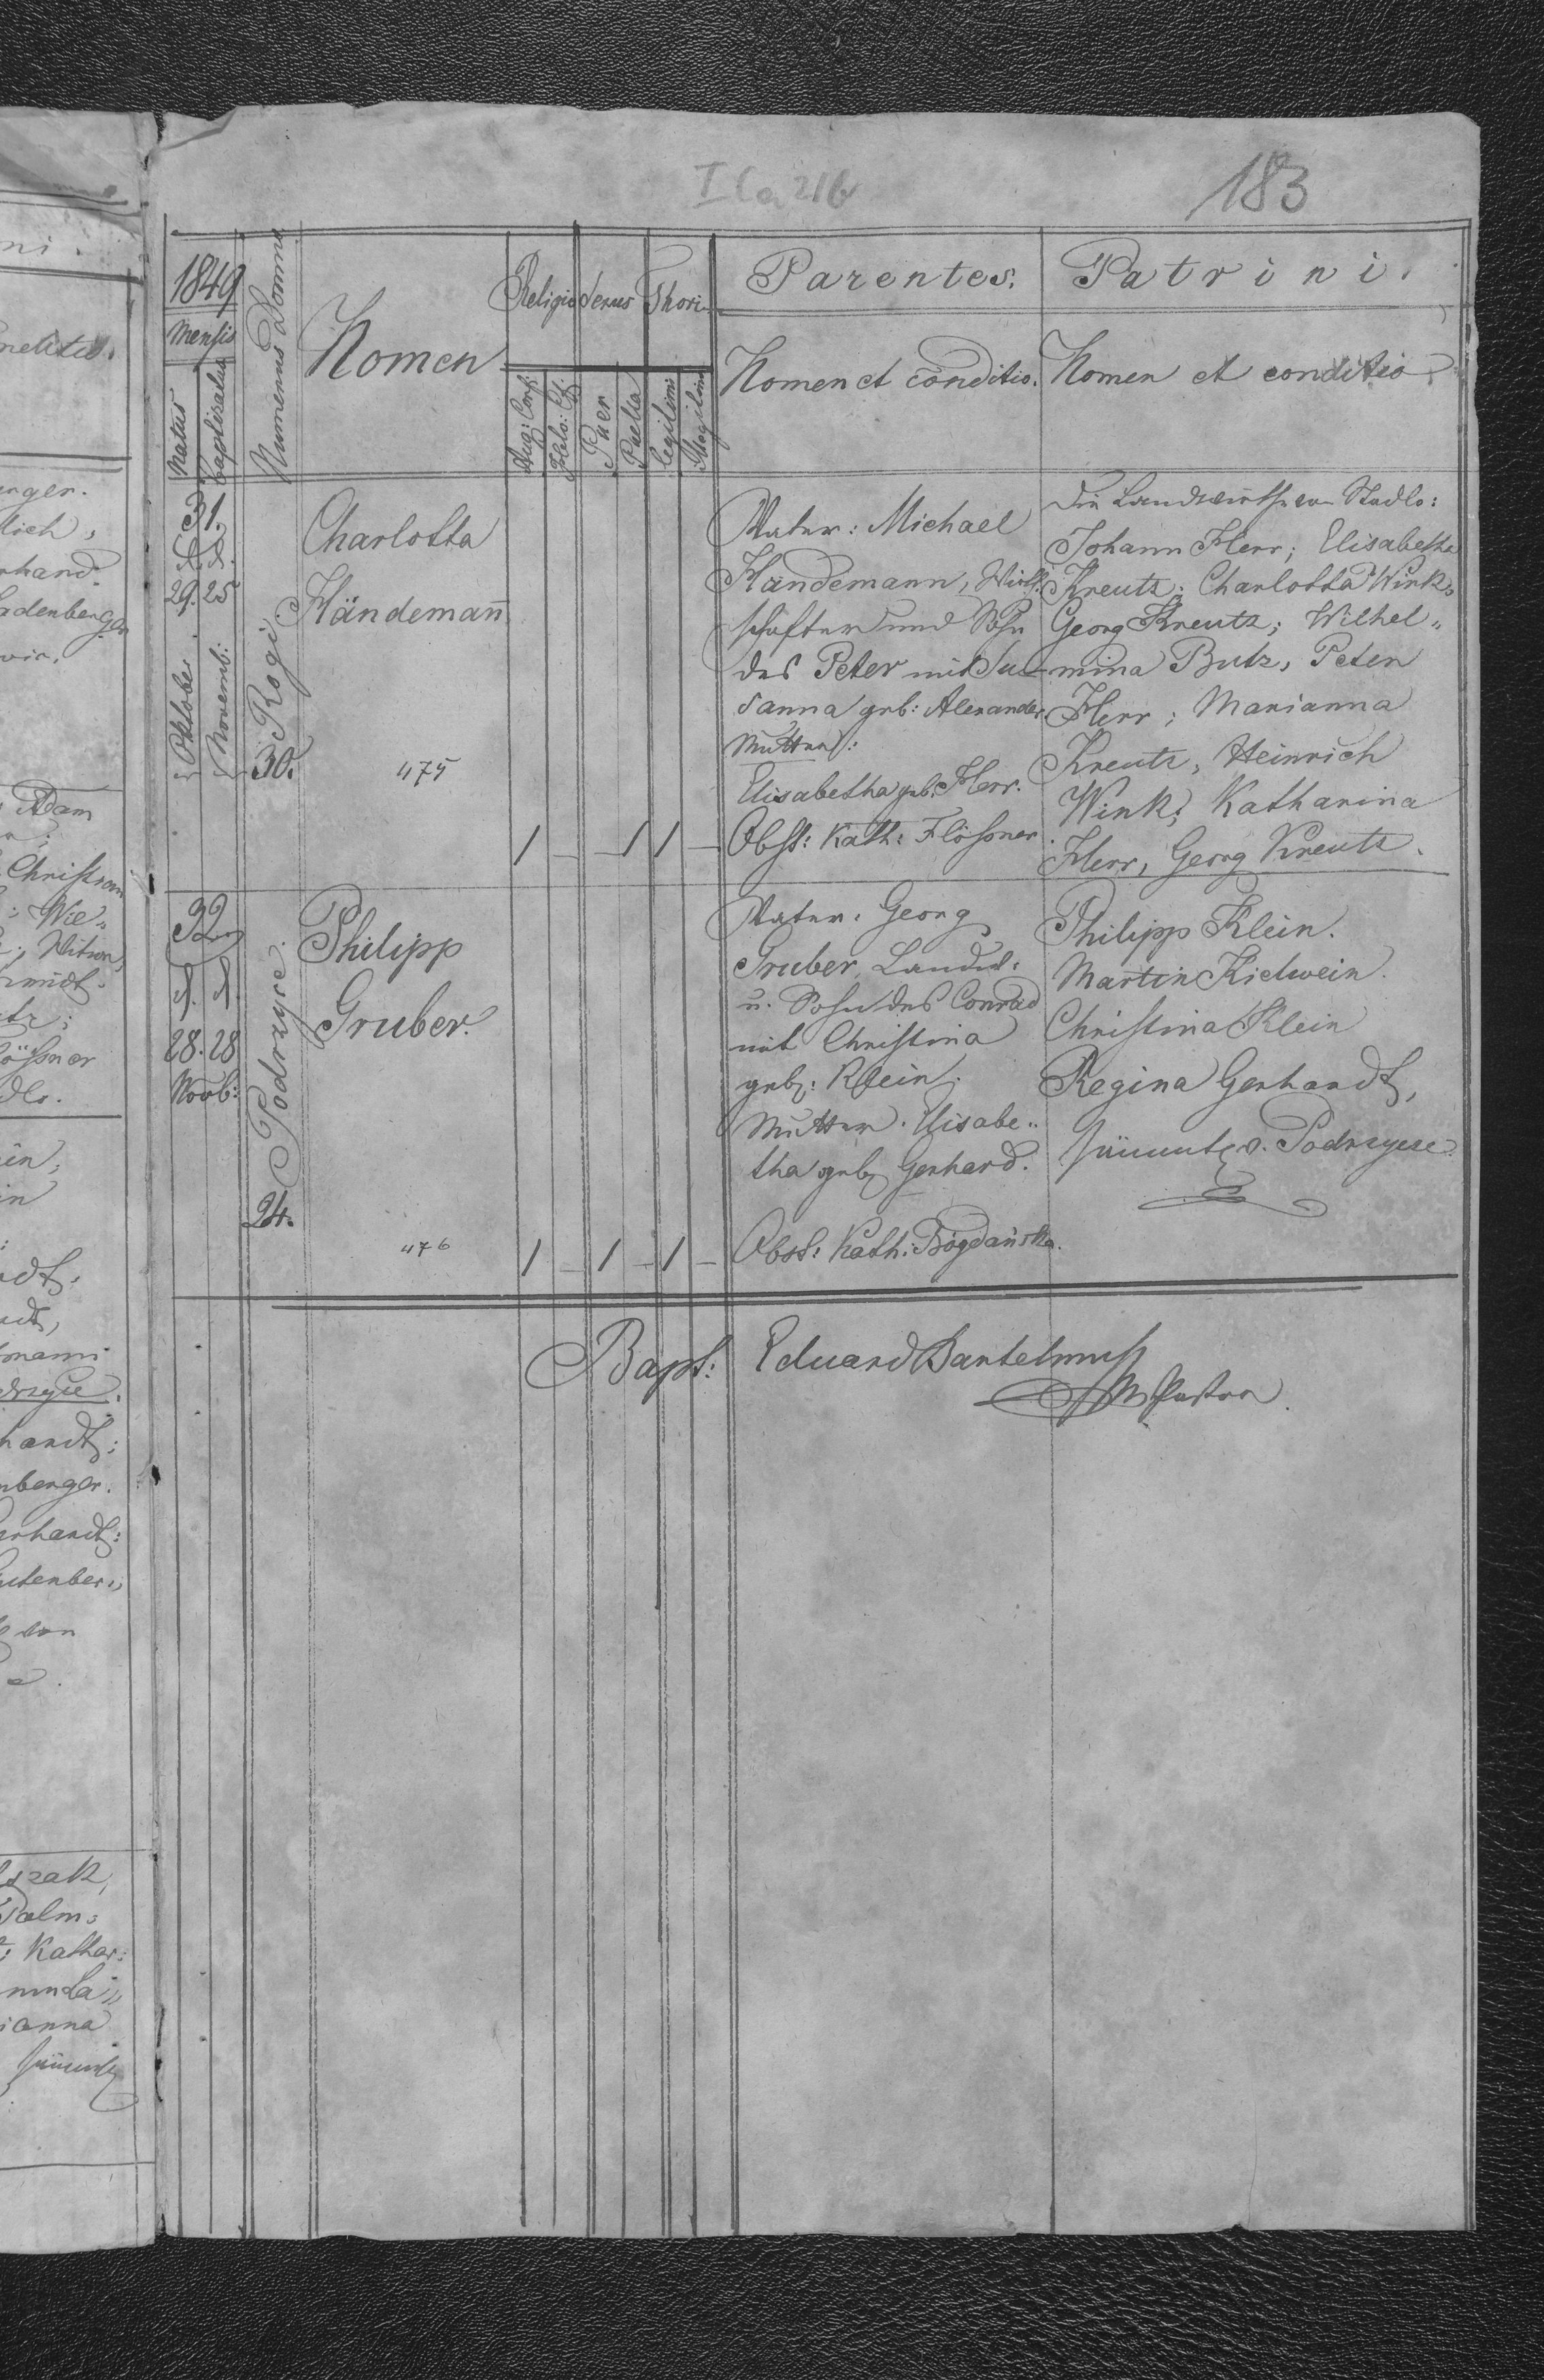 I Ca 216
183
1849
Mensis
Natus
baptisatus
Numerus Domus
Nomen
Religio
Sexus
Thori
Aug: Conf:
Helv: Cf.
Puer
Puella
legitimi
Illegitimi
Parentes.
Nomen et conditio.
Patrini.
Nomen et conditio
31.
d. d.
29. 25
Oktober
Novemb:
Rogi
30.
Charlotta
Händemann
475
1 – – 1 1 –
Vater: Michael
Händemann, Wirth-
schafter und Sohn
des Peter mit Su-
sanna geb: Alexander
Mutter:
Elisabetha geb: Herr.
Obst: Kath: Flößner.
Die Landwirthe von Stadlo:
Johann Herr; Elisabetha
Kreutz; Charlotta Wink,
Georg Kreutz; Wilhel-
mina Butz, Peter
Herr; Marianna
Kreutz, Heinrich
Wink; Katharina
Herr, Georg Kreutz.
32
d. d.
28. 28
Novb:
Podrzyce.
24.
Philipp
Gruber.
476
1 – 1 – 1 –
Vater: Georg
Gruber, Landw:
u. Sohn des Conrad
mit Christina
geb: Klein.
Mutter: Elisabe-
tha geb Gerhard.
Obst: Kath: Bogdańska.
Philipp Klein.
Martin Kielwein.
Christina Klein
Regina Gerhardt,
sämmtl. v. Podrzyce.
Bapt: Eduard Bartelmuß
Pastor.